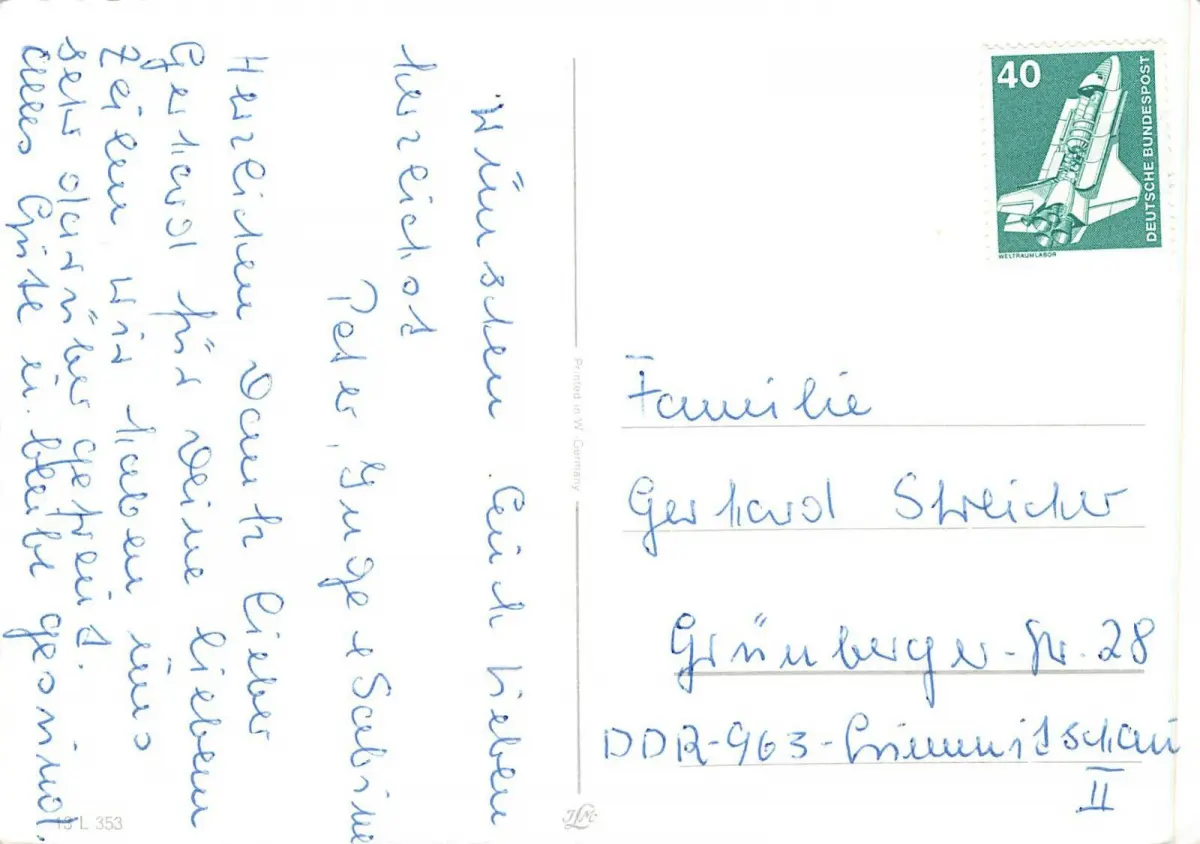 Wünschen Euch Lieben
herzlichst
Peter, Inge + Sabine
Herzlichen Dank lieber
Gerhard für Deine lieben
Zeilen wir haben uns
sehr darüber gefreut.
Alles Gute u. bleibt gesund.
40
DEUTSCHE BUNDESPOST
WELTRAUMLABOR
Printed in W.-Germany
Familie
Gerhard Streicher
Grünberger-Str. 28
DDR-963-Crimmitschau
II
13 L 353